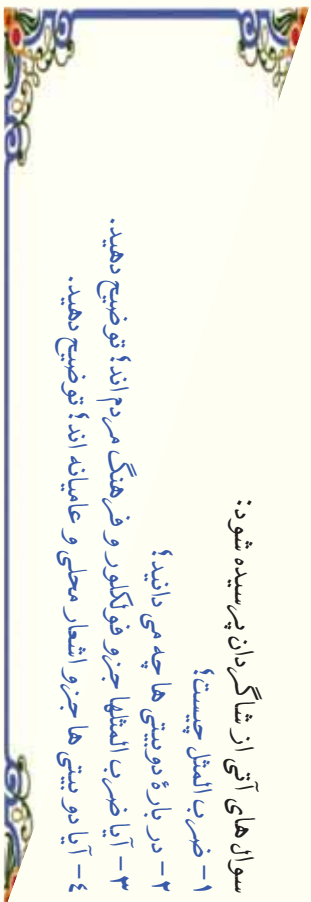 سوال های آتی از شاگردان پرسیده شود:
۱- ضرب المثل چیست؟
۲- در بارۀ دوبیتی ها چه می دانید؟
۳- آیا ضرب المثلها جزو فولکلور و فرهنگ مردم اند؟ توضیح دهید.
۴- آیا دو بیتی ها جزو اشعار محلی و عامیانه اند؟ توضیح دهید.